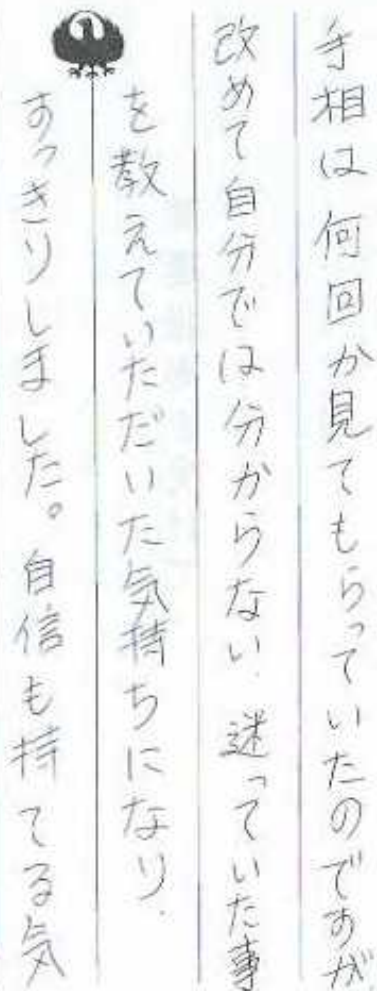 手相は何回か見てもらっていたのですが
改めて自分では分からない、迷っていた事
を教えていただいた気持ちになり、
すっきりしました。自信も持てる気